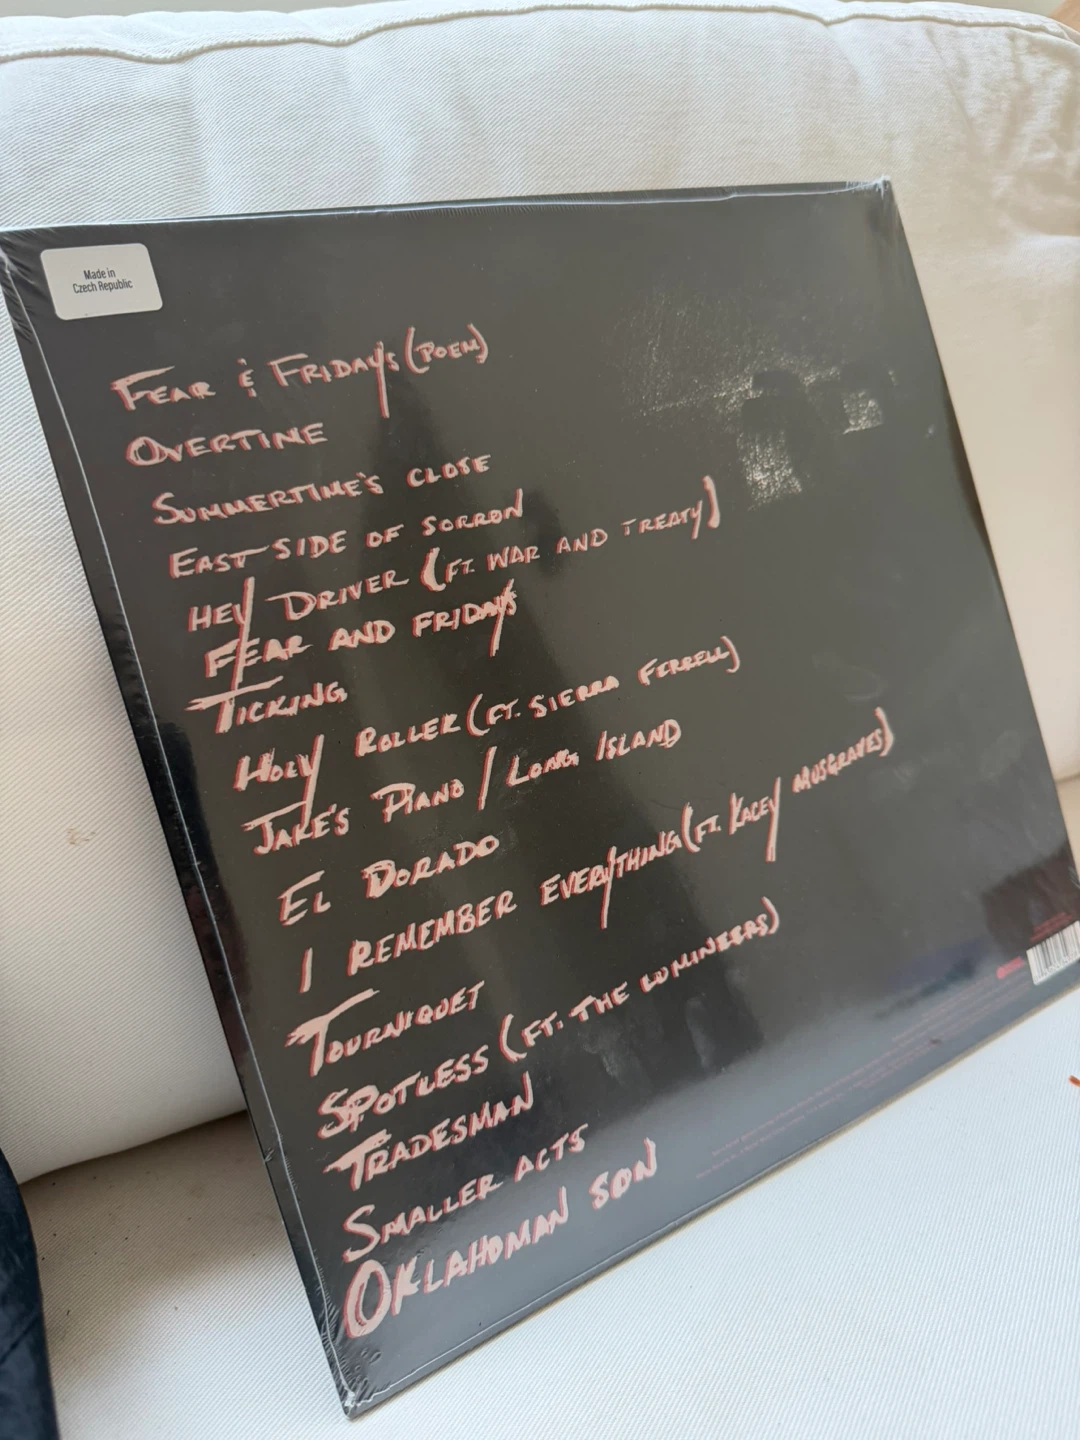 Made in
Czech Republic
FEAR & FRIDAYS (POEM)
OVERTIME
SUMMERTIME'S CLOSE
EAST SIDE OF SORROW
HEY DRIVER (FT. WAR AND TREATY)
FEAR AND FRIDAYS
TICKING
HOLY ROLLER (FT. SIERRA FERRELL)
JAKE'S PIANO / LONG ISLAND
EL DORADO
I REMEMBER EVERYTHING (FT. KACEY MUSGRAVES)
TOURNIQUET
SPOTLESS (FT. THE LUMINEERS)
TRADESMAN
SMALLER ACTS
OKLAHOMAN SON